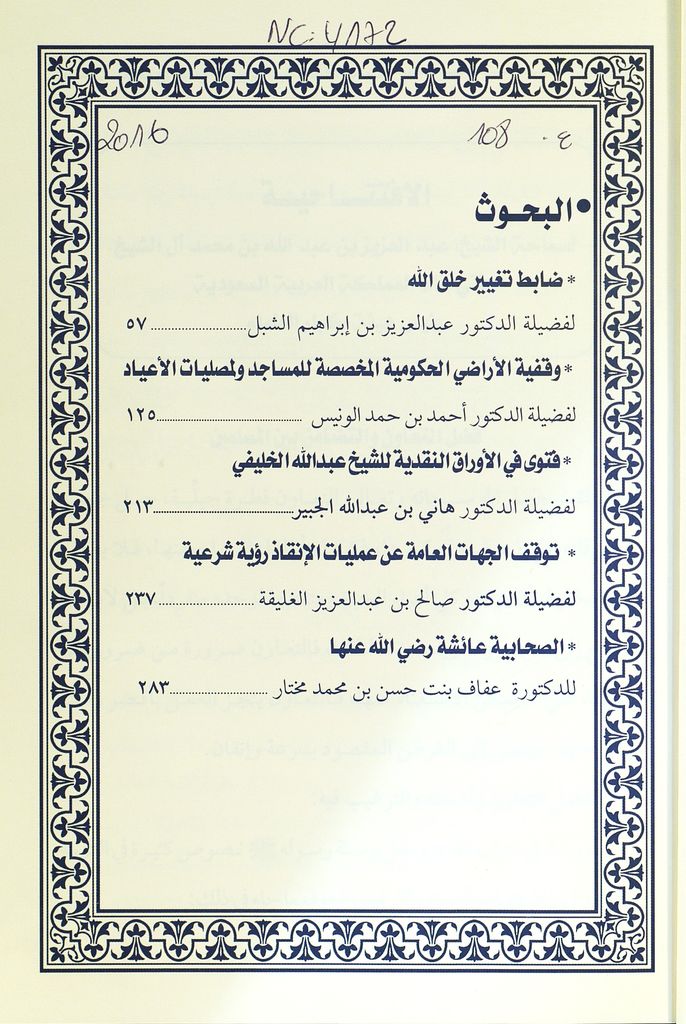 NC: 4172
2016
108 - ع
• البحوث
* ضابط تغيير خلق الله
لفضيلة الدكتور عبدالعزيز بن إبراهيم الشبل ........................ ٥٧
* وقفية الأراضي الحكومية المخصصة للمساجد ولمصليات الأعياد
لفضيلة الدكتور أحمد بن حمد الونيس ........................ ١٢٥
* فتوى في الأوراق النقدية للشيخ عبدالله الخليفي
لفضيلة الدكتور هاني بن عبدالله الجبير ........................ ٢١٣
* توقف الجهات العامة عن عمليات الإنقاذ رؤية شرعية
لفضيلة الدكتور صالح بن عبدالعزيز الغليقة ........................ ٢٣٧
* الصحابية عائشة رضي الله عنها
للدكتورة عفاف بنت حسن بن محمد مختار ........................ ٢٨٣